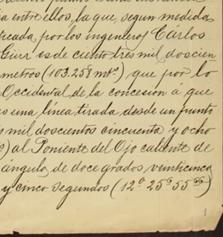 entre ellos la que segun medida
icada, por los ingenieros Carlos
es de cuento tres mil doscien
metros (103.258 mts) que por lo
Occidental de la concesión a que
es una línea tirada desde un punto
mil doscientos cincuenta y ocho
al Poniente del Ojo caliente de
ángulo de doce grados veinticinco
y cinco segundos (12° 25' 55")